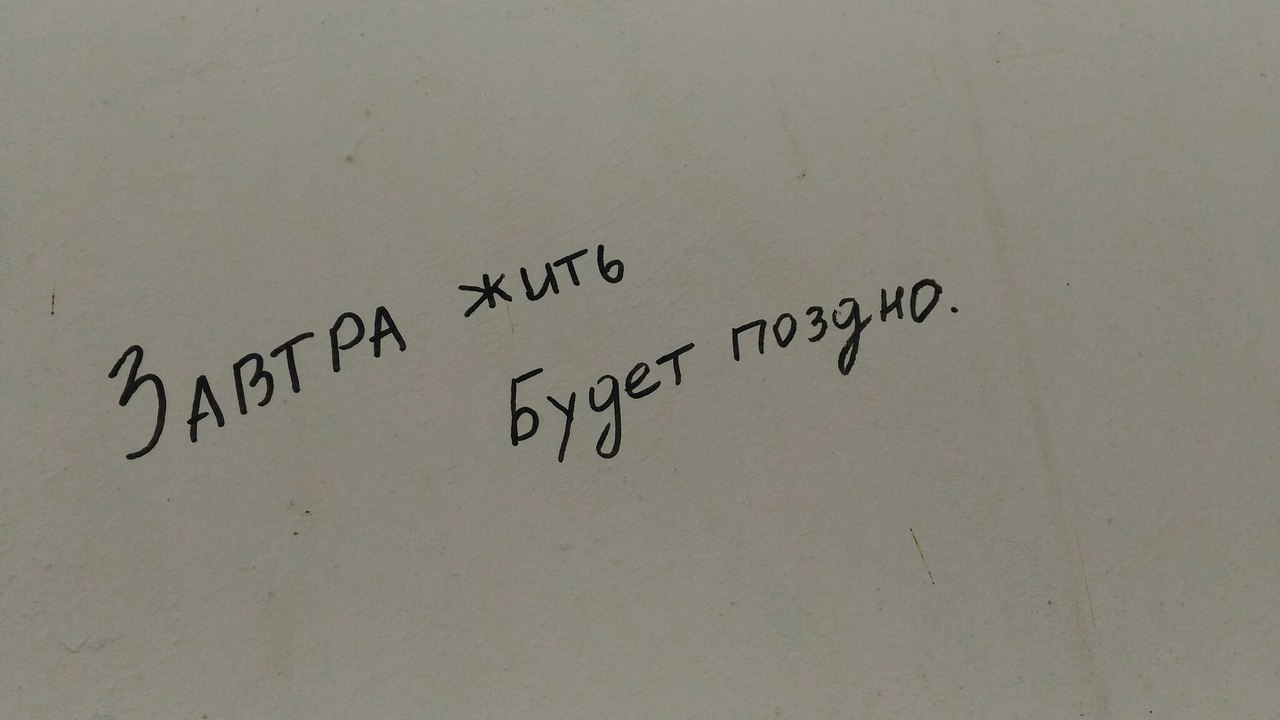 Завтра жить
Будет поздно.